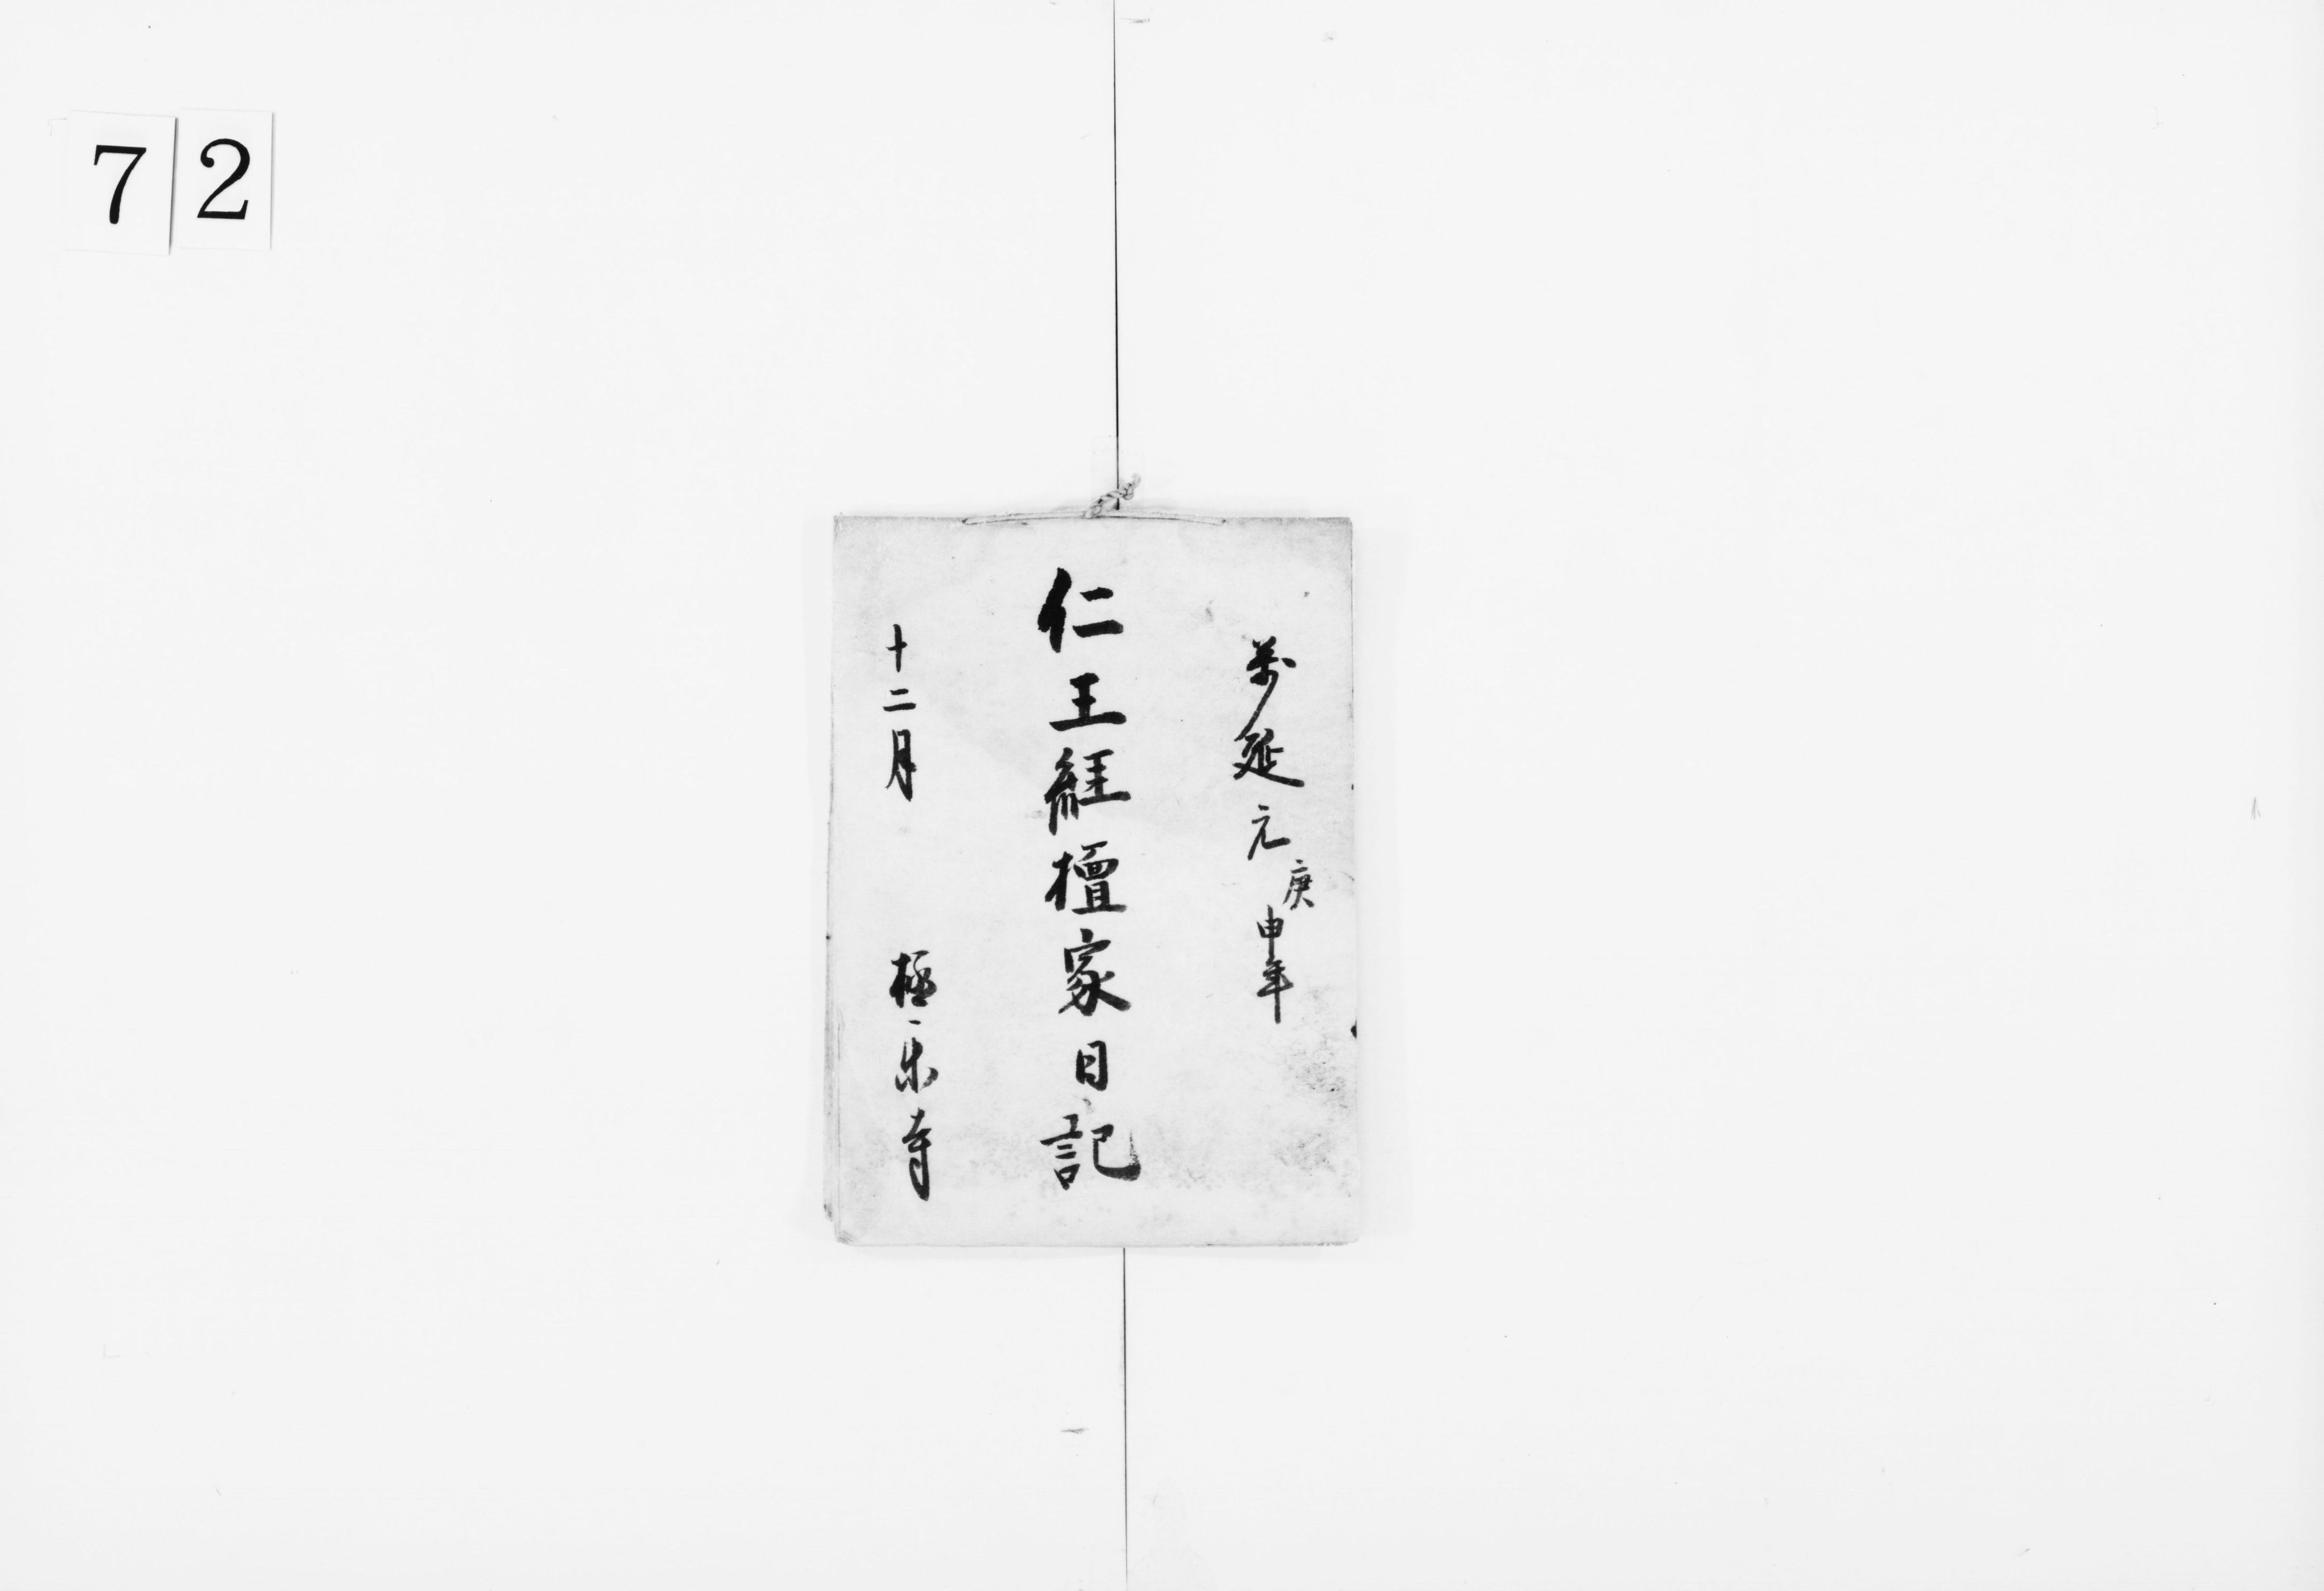 72
萬延元庚申年
仁王經檀家日記
十二月　極楽寺